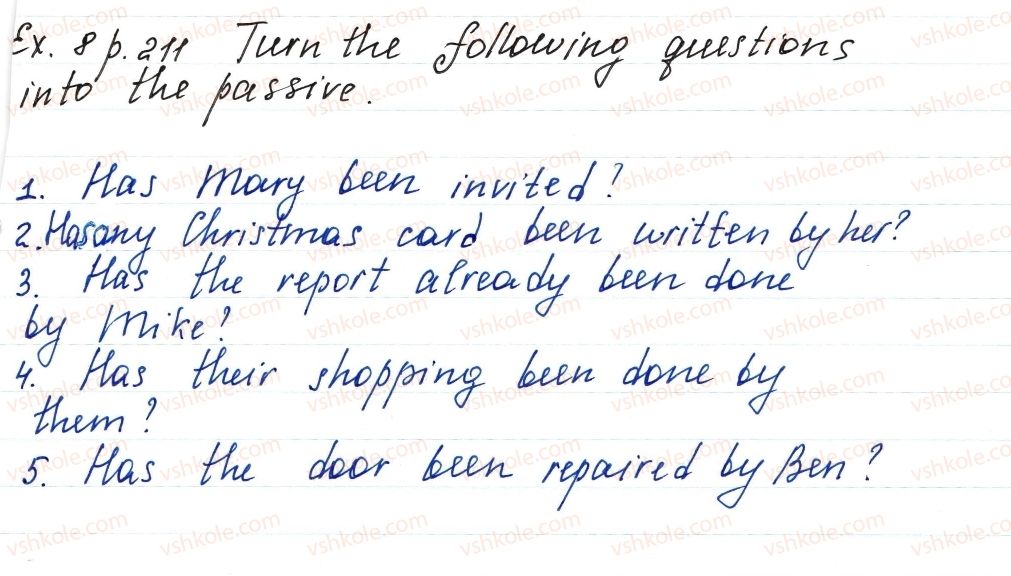 Ex. 8 p. 211 Turn the following questions
into the passive.
1. Has Mary been invited?
2. Has any Christmas card been written by her?
3. Has the report already been done
by Mike?
4. Has their shopping been done by
them?
5. Has the door been repaired by Ben?